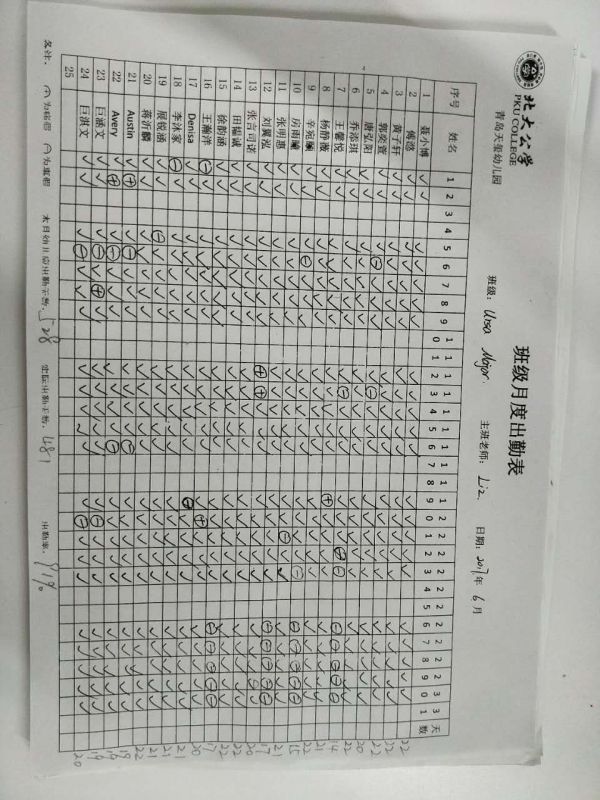 北大公学
PKU COLLEGE
青岛天玺幼儿园
班级月度出勤表
班级: Ursa Major. 主班老师: Liz. 日期: 2017年 6月
序号 姓名 1 2 3 4 5 6 7 8 9 10 11 12 13 14 15 16 17 18 19 20 21 22 23 24 25 26 27 28 29 30 31 天数
1 聂小博 22
2 傅滢 22
3 黄子轩 22
4 郭奕萱
5 唐弘阳
6 乔添琪 22
7 王馨悦 14
8 杨静薇 21
9 辛宛
10 房雨曈 15
11 张明惠 21
12 刘翼泓 17
13 张言可诺 20
14 田福诚 22
15 徐韵涵 22
16 王瀚洋 17
17 Denisa 20
18 李沐家 21
19 展锐涵 21
20 蒋沂麟 22
21 Austin
22 Avery
23 巨淇文 19
24 巨淇文 20
25
本月幼儿应出勤天数: 528 实际出勤天数: 481 出勤率: 91%